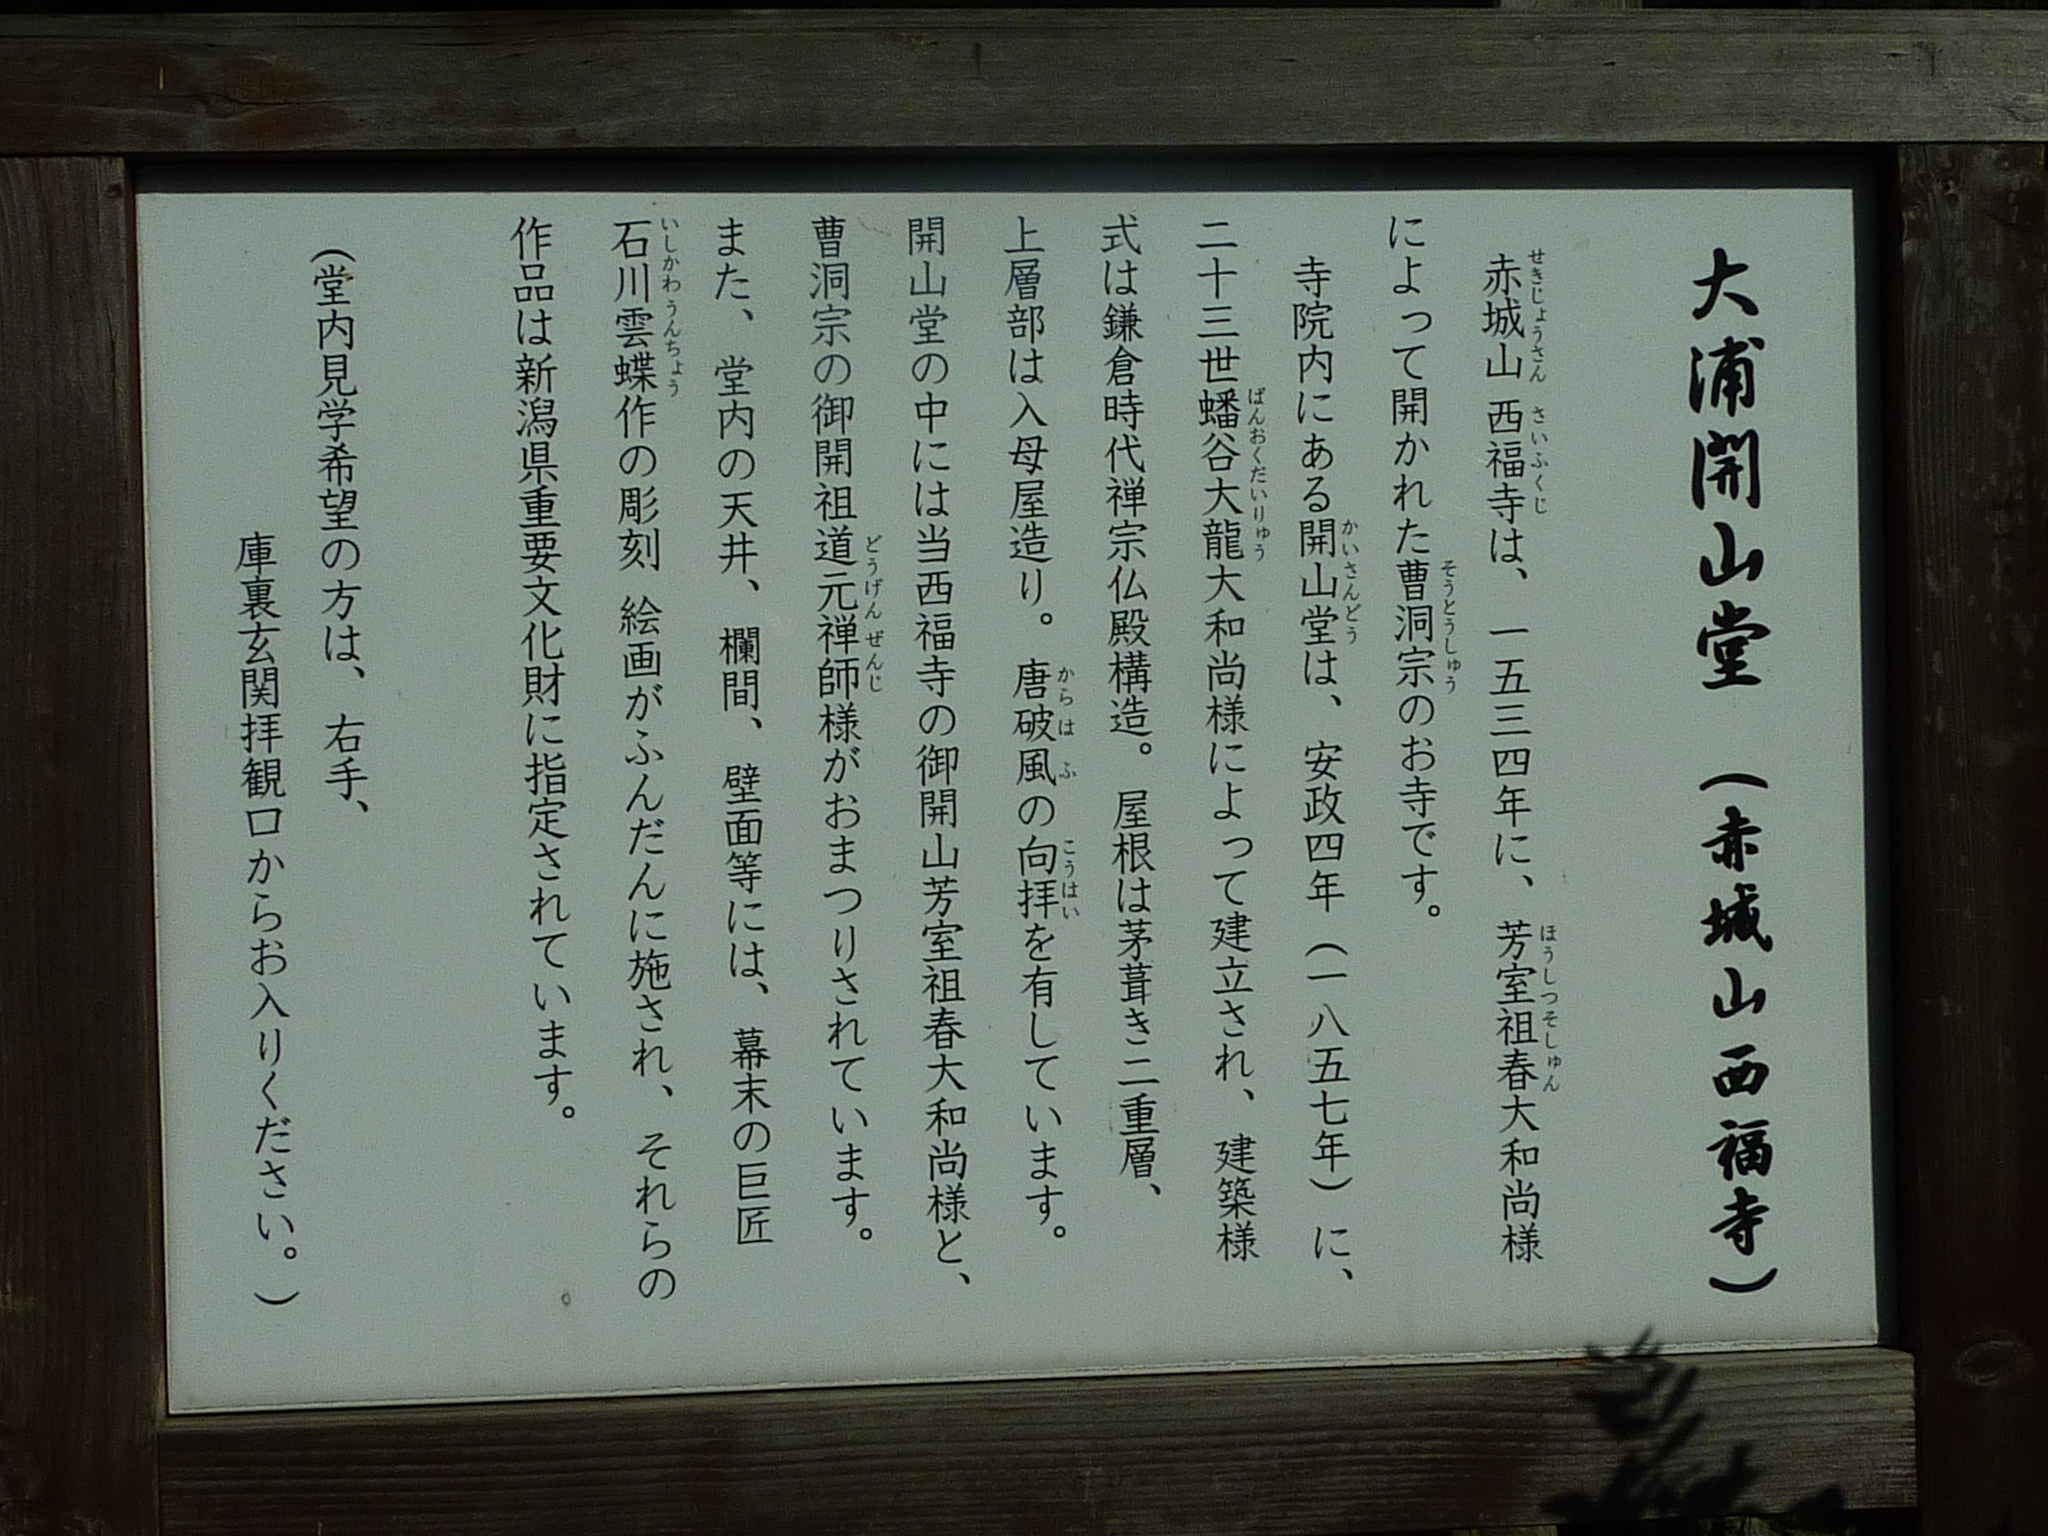 大浦開山堂（赤城山西福寺）
赤城山 西福寺は、一五三四年に、芳室祖春大和尚様
によって開かれた曹洞宗のお寺です。
寺院内にある開山堂は、安政四年（一八五七年）に、
二十三世蟠谷大龍大和尚様によって建立され、建築様
式は鎌倉時代禅宗仏殿構造。屋根は茅葺き二重層、
上層部は入母屋造り。唐破風の向拝を有しています。
開山堂の中には当西福寺の御開山芳室祖春大和尚様と、
曹洞宗の御開祖道元禅師様がおまつりされています。
また、堂内の天井、欄間、壁面等には、幕末の巨匠
石川雲蝶作の彫刻 絵画がふんだんに施され、それらの
作品は新潟県重要文化財に指定されています。
（堂内見学希望の方は、右手、
庫裏玄関拝観口からお入りください。）